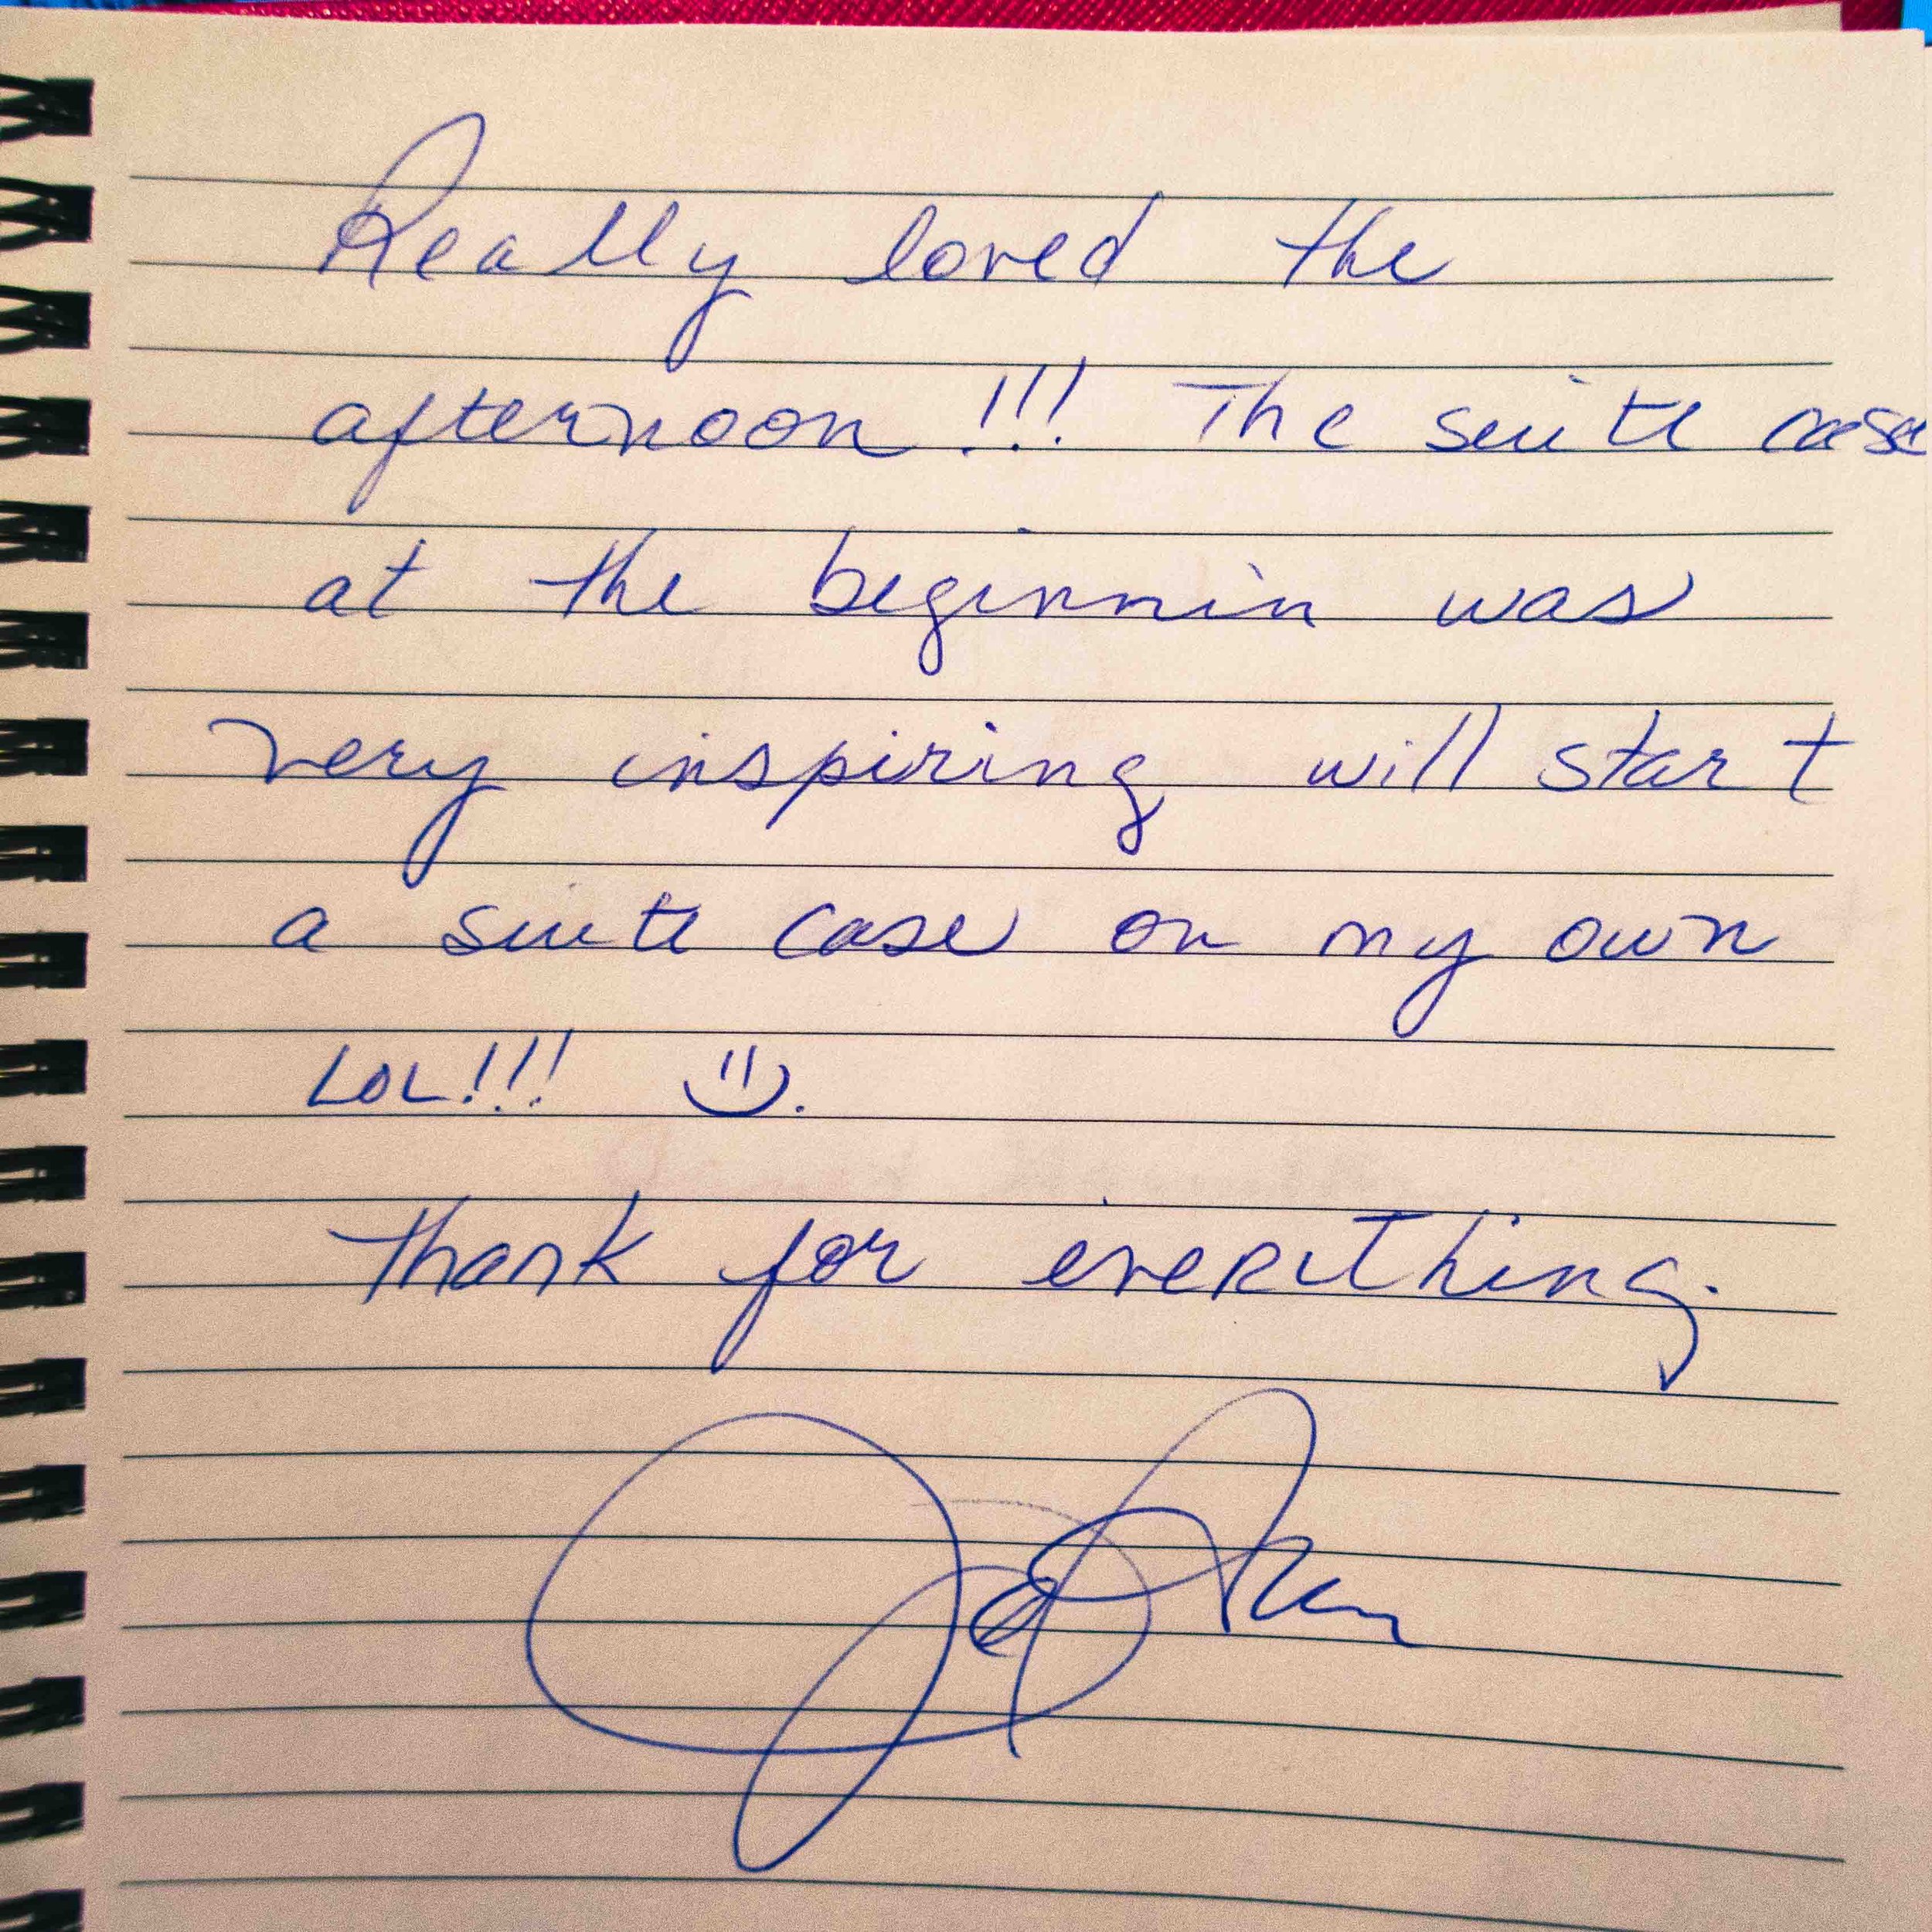 Really loved the
afternoon!!! The suite case
at the beginnin was
very inspiring will start
a suite case on my own
LOL!!! :).
Thank for everithing.